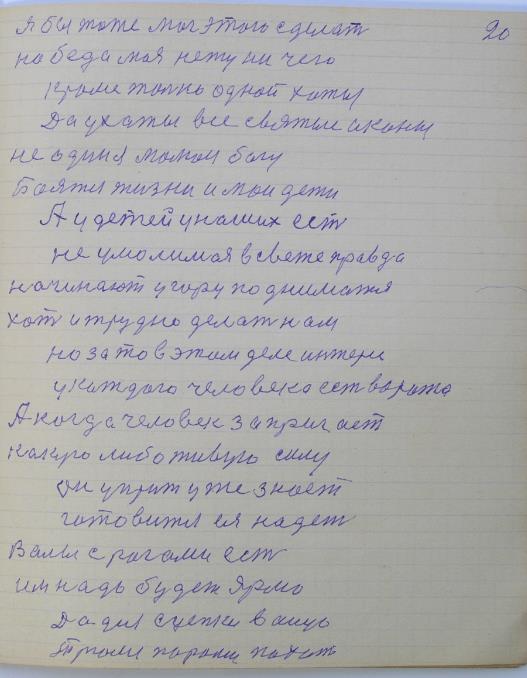 я бы тоже мог этого сделат
20
но беда моя нету ни чего
кроме толко одной хаты
Да у хаты все святые иконы
не один я молюся богу
Боятся жизни и мои дети
А у детей у наших ест
не умолимая в свете правда
начинают у гору подниматя
хот и трудно делат нам
но зато в этом деле интерес
у каждого человека ест ворота
А когда человек запрягает
какую либо живую силу
он упряж уже знает
готовится ея надет
Валы с рогами ест
им надь будеж Ярмо
Да для сцепки
парами пахат